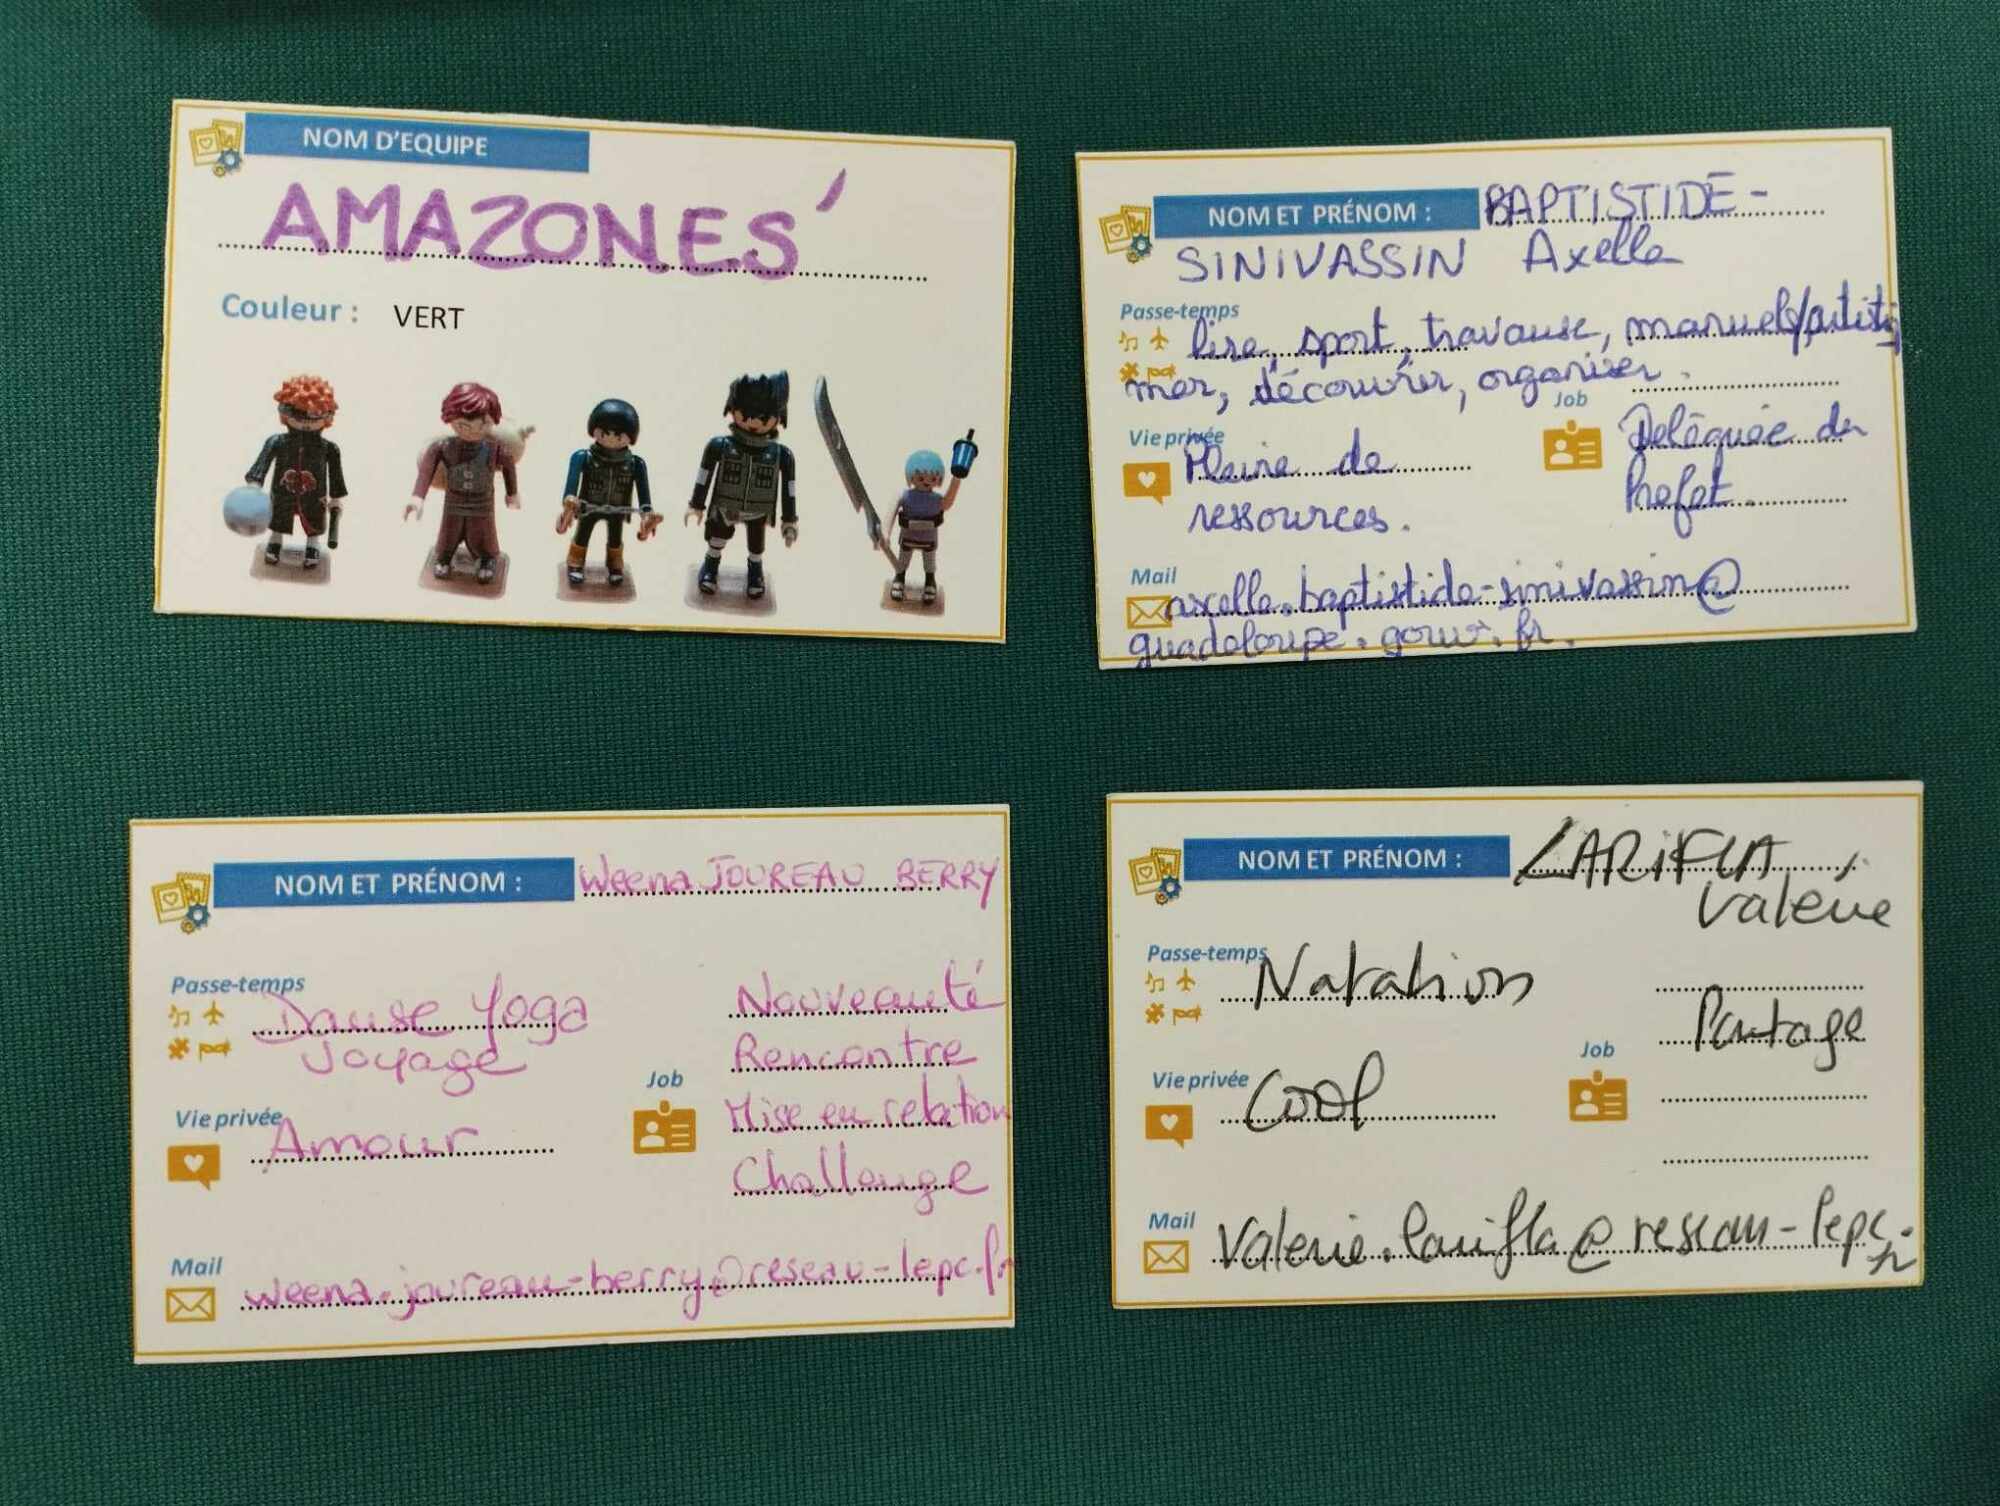 NOM D'EQUIPE
AMAZONES'
Couleur : VERT
NOM ET PRÉNOM : BAPTISTIDE-
SINIVASSIN Axelle
Passe-temps
lire, sport, travause, manuels/artisti
mer, découvrir, organiser.
Job
Vie privée
Déléguée du
Pleine de
Préfet.
ressources.
Mail
axelle.baptistide-sinivassin@
guadeloupe.gouv.fr.
NOM ET PRÉNOM : Weena JOUREAU BERRY
Passe-temps
Danse Yoga
Voyage
Nouveauté
Rencontre
Job
Mise en relation
Challenge
Vie privée
Amour
Mail
weena.joureau-berry@reseau-lepc.fr
NOM ET PRÉNOM : LARIFLA
Valérie
Passe-temps
Natation
Partage
Job
Vie privée
Cool
Mail
Valerie.larifla@reseau-lepc.
fr